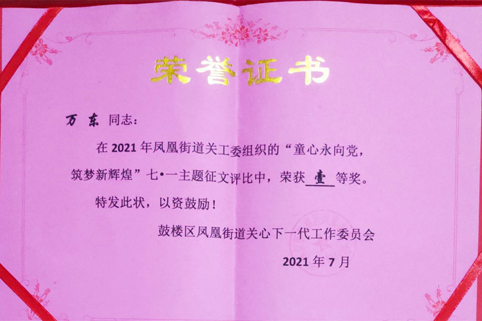 荣誉证书
万东同志：
在2021年凤凰街道关工委组织的“童心永向党，
筑梦新辉煌”七•一主题征文评比中，荣获 壹 等奖。
特发此状，以资鼓励！
鼓楼区凤凰街道关心下一代工作委员会
2021年7月